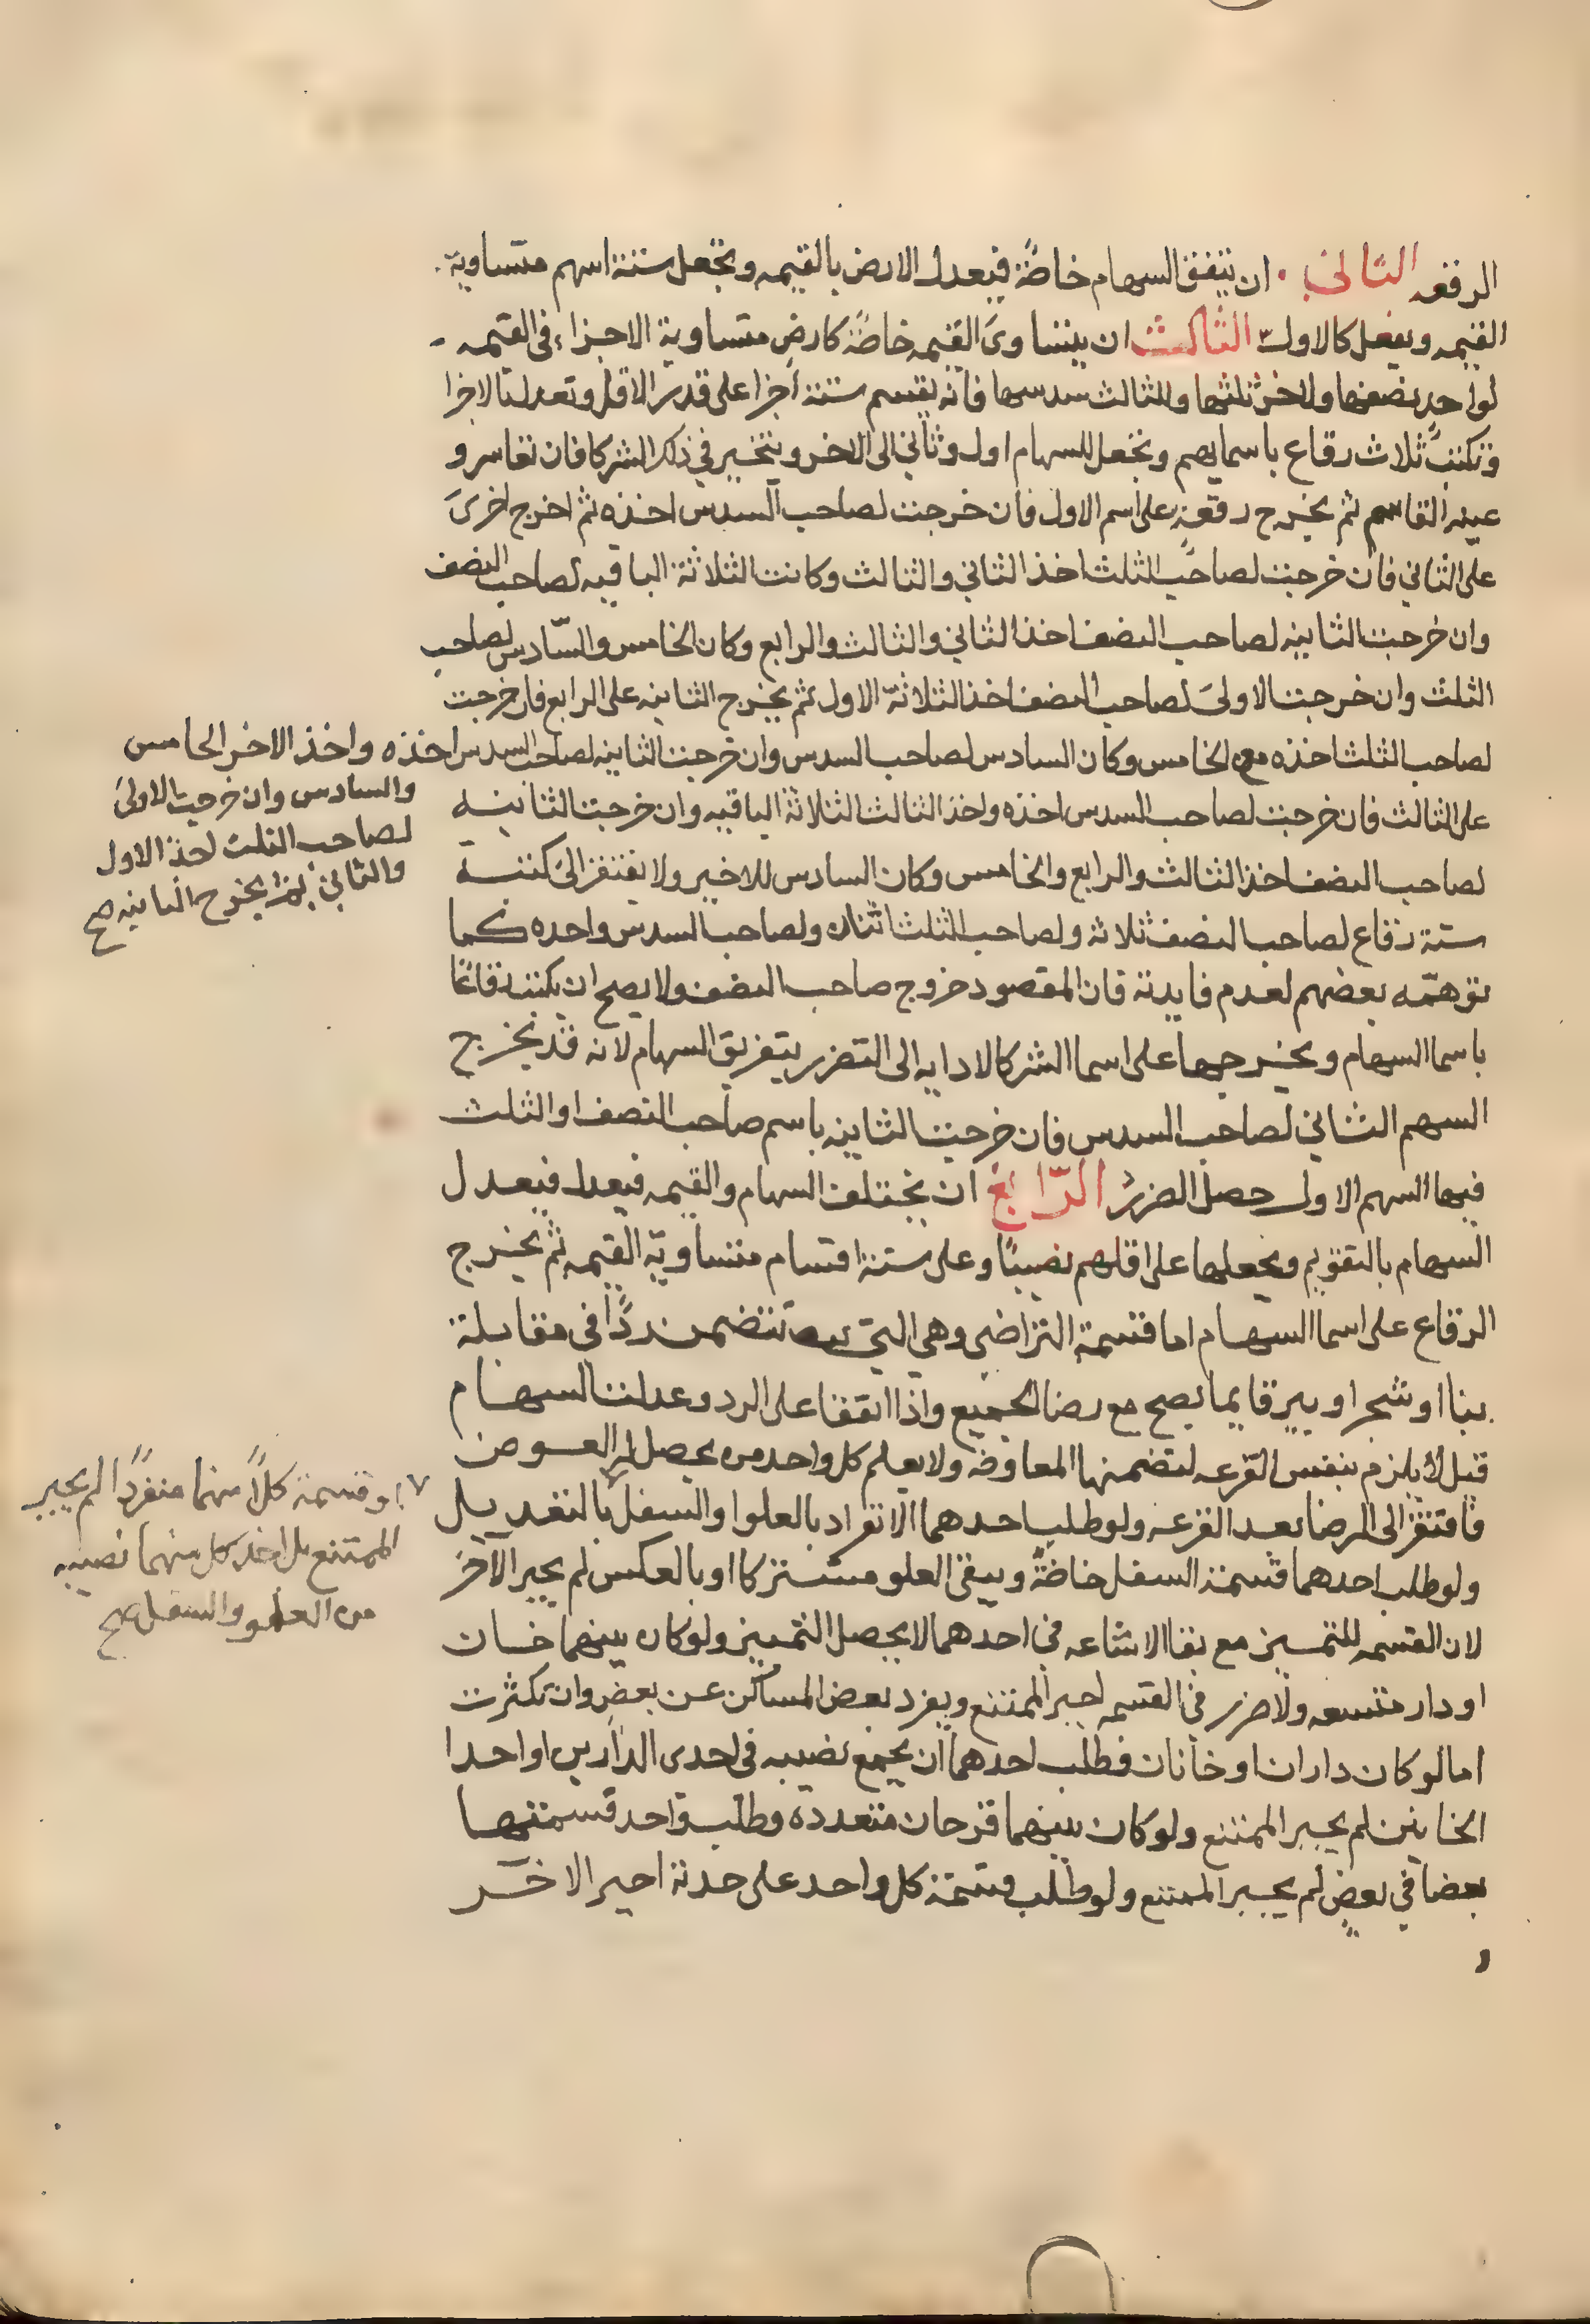 الرقعه الثاني . ان تتفق السهام خاصّةً فيعدل الارض بالقيمه وتجعل ستة اسهم متساوية
القيمه ويفعل كالاول الثالث ان يتساوى القيمه خاصّة كارضٍ متساوية الاجزاء في القيمه
لواحدٍ نصفها ولاخر ثلثها وللثالث سدسها فانه يقسم ستة أجزا على قدر الاقل وتعدلت الاجزا
وتكتب ثلاث رقاع باسمايهم وتجعل للسهام اول وثاني الى الاخر ويتخير في ذلك الشركا فان تعاسرو
عينه القاسم ثم يخرج رقعة على اسم الاول فان خرجت لصاحب السدس اخذه ثم اخرج اخرى
على الثاني فان خرجت لصاحب الثلث اخذ الثاني والثالث وكانت الثلاثة الباقيه لصاحب النصف
وان خرجت الثانيه لصاحب النصف اخذ الثاني والثالث والرابع وكان الخامس والسّادس لصاحب
الثلث وان خرجت الاولىَ لصاحب النصف اخذ الثلاثة الاول ثم يخرج الثانيه على الرابع فان خرجت
لصاحب الثلث اخذه مع الخامس وكان السادس لصاحب السدس وان خرجت الثانيه لصاحب السدس اخذه واخذ الاخر الخامس
والسادس وان خرجت الاولىَ
لصاحب الثلث اخذ الاول
والثاني ثم يخرج الثانيه صح
على الثالث فان خرجت لصاحب السدس اخذه واخذ الثالث الثلاثة الباقيه وان خرجت الثانيه
لصاحب النصف اخذ الثالث والرابع والخامس وكان السادس للاخير ولا يفتقر الىَ كتبة
ستة رقاع لصاحب النصف ثلاثة ولصاحب الثلث اثنان ولصاحب السدس واحده كما
توهمّه بعضهم لعدم فايدته فان المقصود خروج صاحب النصف ولا يصح ان يكتب رقاعًا
باسما السهام ويخرجها على اسما الشركا لادايه الى التضرر بتفريق السهام لانه قد يخرج
السهم الثاني لصاحب السدس فان خرجت الثانيه باسم صاحب النصف او الثلث
فيها السهم الاول حصل الضرر الرّابع ان تختلف السهام والقيمه فيعدل فيعدل
السهام بالتقويم ويجعلها على اقلهم نصيبًا وعلى ستة اقسام متساويّة القيمه ثم يخرج
الرقاع على اسما السهام اما قسمة التراضي وهي التي تتضمن ردًّا في مقابلة
بنا او شجر او بير فايما يصح مع رضا الجميع واذا اتفقا على الرد وعدلت السهام
قيل لا يلزم بنفس القرعه لتضمنها المعاوضه ولا يعلم كل واحد من يحصل له العوض
فافتقر الى الرضا بعد القرعه ولو طلب احدهما الانفراد بالعلوا والسفل بالتعديل
او قسمة كلاًّ منهما منفردًا لم يجبر
الممتنع بل اخذ كل منهما نصيبه
من العلو والسفل صح
ولو طلب احدهما قسمة السفل خاصّةً ويبقى العلو مشتركا او بالعكس لم يجبر الآخر
لان القسمه للتمييز مع بقا الاشاعه في احدهما لا يحصل التمييز ولو كان بينهما خان
او دار متسعه ولا ضرر في القسمه اجبر الممتنع ويفرد بعض المساكن عن بعضٍ وان تكثرت
اما لو كان داران او خانان فطلب احدهما ان يجمع نصيبه في احدى الدارين او احدا
الخانين لم يجبر الممتنع ولو كان بينهما قرحان متعدده وطلب واحد قسمتها
بعضا في بعضٍ لم يجبر الممتنع ولو طلب قسمة كل واحد على حدته اجبر الاخر